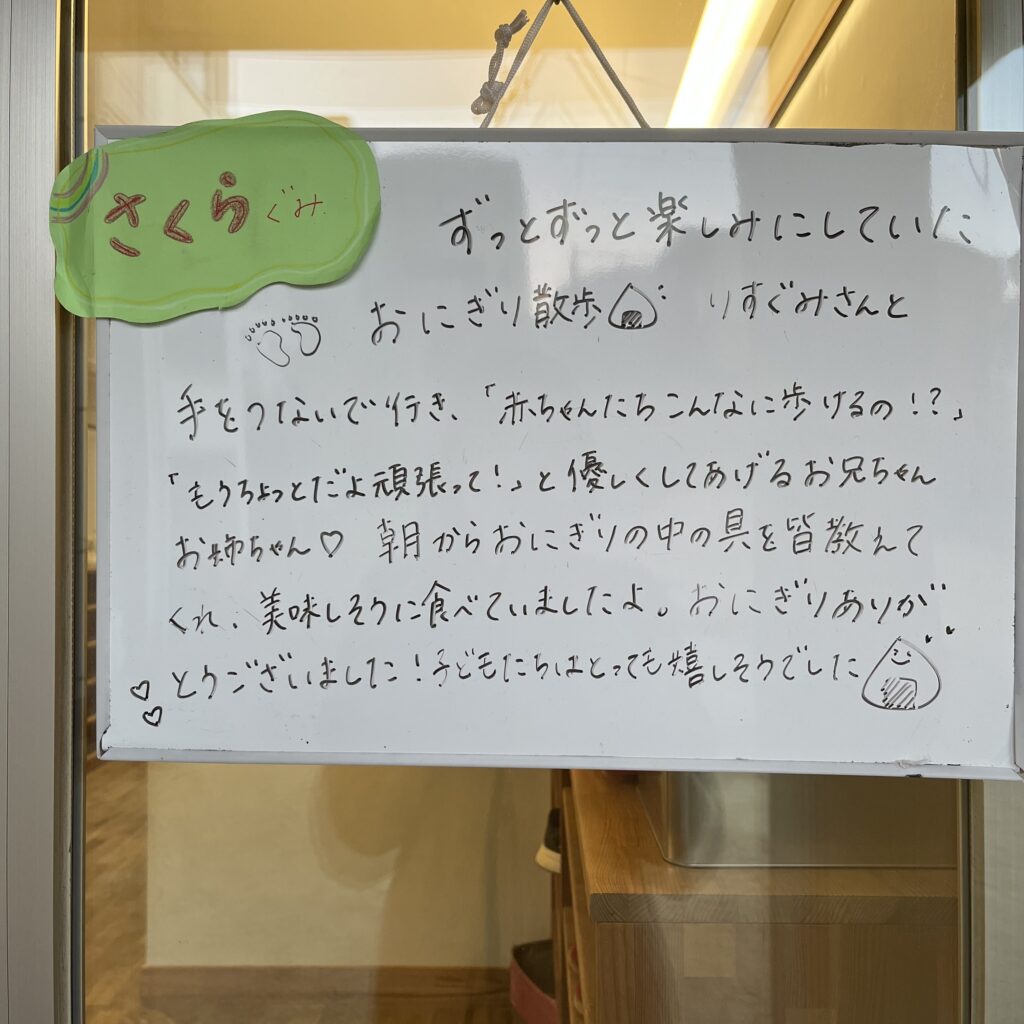 さくらぐみ
ずっとずっと楽しみにしていた
おにぎり散歩 りすぐみさんと
手をつないで行き、「赤ちゃんたちこんなに歩けるの!?」
「もうちょっとだよ頑張って!」と優しくしてあげるお兄ちゃん
お姉ちゃん♡ 朝からおにぎりの中の具を皆教えて
くれ、美味しそうに食べていましたよ。おにぎりありが
とうございました!子どもたちはとっても嬉しそうでした